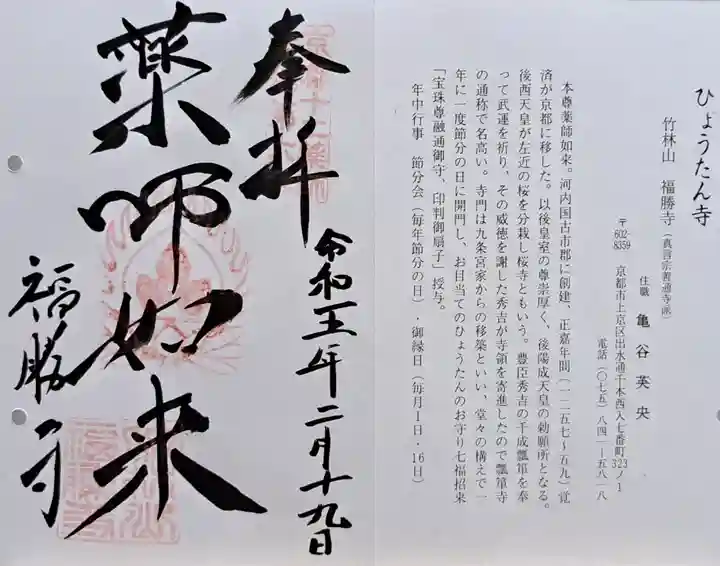 ひょうたん寺
竹林山　福勝寺（真言宗善通寺派）
住職　亀谷英央
〒602-8359　京都市上京区出水通千本西入七番町323ノ1
電話（〇七五）八四一ー五八一八
本尊薬師如来。河内国古市郡に創建、正嘉年間（一二五七〜五九）覚
済が京都に移した。以後皇室の尊崇厚く、後陽成天皇の勅願所となる。
後西天皇が左近の桜を分栽し桜寺ともいう。豊臣秀吉の千成瓢箪を奉
って武運を祈り、その威徳を謝した秀吉が寺領を寄進したので瓢箪寺
の通称で名高い。寺門は九条宮家からの移築といい、堂々の構えで一
年に一度節分の日に開門し、お目当てのひょうたんのお守り七福招来
「宝珠尊融通御守、印判御扇子」授与。
年中行事　節分会（毎年節分の日）・御縁日（毎月1日・16日）
奉拝
令和五年二月十九日
薬師如来
福勝寺